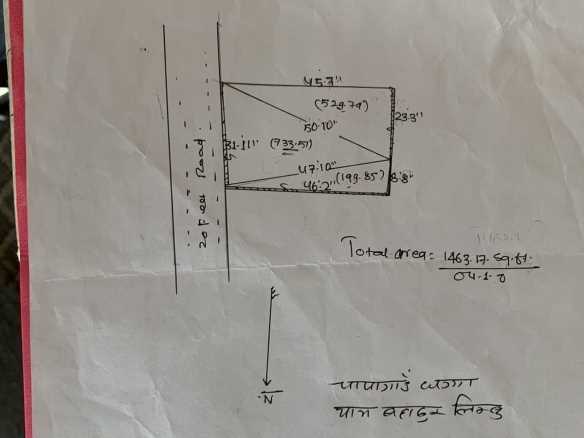 45'.7"
(529.79)
23'.3"
50'.10"
31'.11"
(733.51)
47'.10"
(199.85)
8'.8"
46'.2"
20 Feet Road
Total area = 1463.17.sq.ft.
04.1.0
N
बहादुर लिम्बु